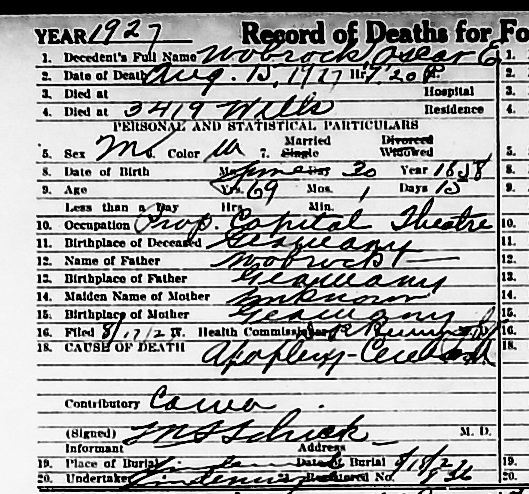 YEAR 1927 Record of Deaths for Fo
1. Decedent's Full Name Wobrock, Oscar E 1.
2. Date of Death Aug. 15, 1927 Hr. 7.20 P. 2.
3. Died at Hospital 3.
4. Died at 3419 Wells Residence 4.
PERSONAL AND STATISTICAL PARTICULARS
5. Sex M 6. Color W 7. Married Single Divorced Widowed 5.
8. Date of Birth Mo. June Day 30 Year 1858 8.
9. Age Yrs. 69 Mos. 1 Days 15 9.
Less than a Day Hrs. Min.
10. Occupation Prop. Capital Theatre 10.
11. Birthplace of Deceased Germany 11.
12. Name of Father Wobrock 12.
13. Birthplace of Father Germany 13.
14. Maiden Name of Mother Unknown 14.
15. Birthplace of Mother Germany 15.
16. Filed 8/17/27 Health Commissioner 16.
18. CAUSE OF DEATH Apoplexy - Cerebral 18.
Contributory Coma .
(Signed) Schick M. D.
Informant Address
19. Place of Burial Lindenwood Date of Burial 8/18/27 19.
20. Undertaker Registered No. 936 20.